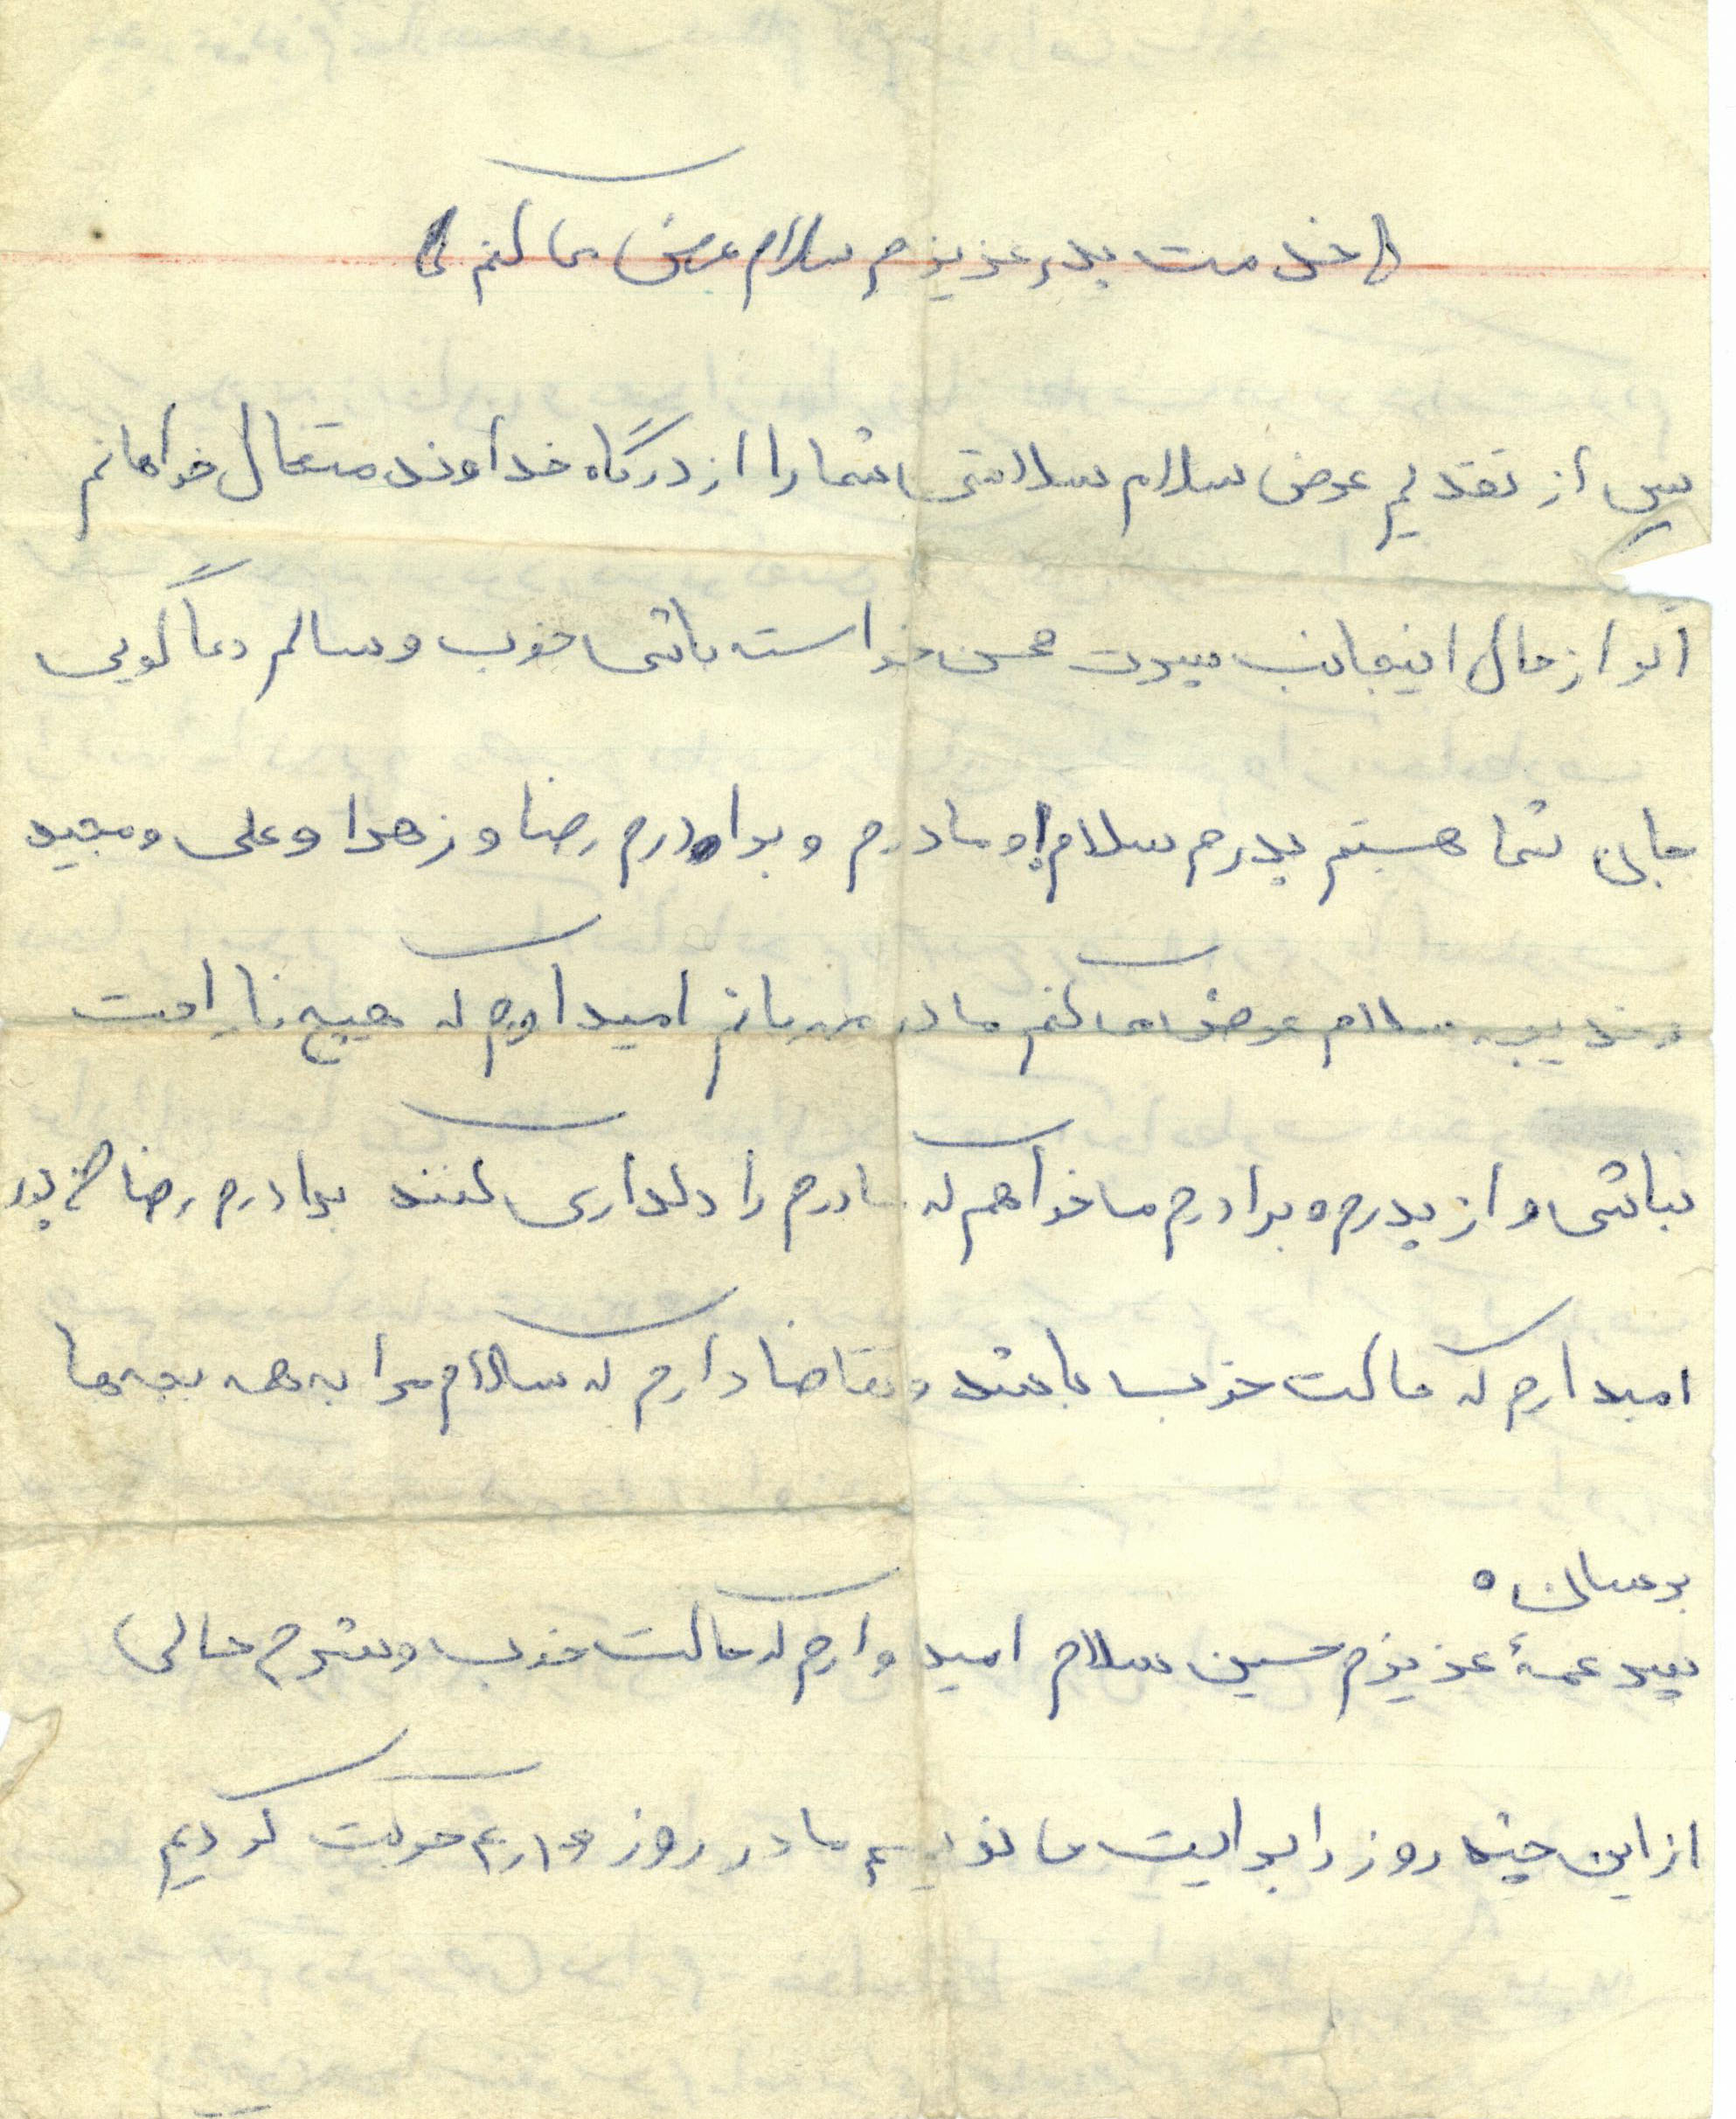 خدمت پدر عزیزم سلام عرض می کنم
پس از تقدیم عرض سلام سلامتی شما را از درگاه خداوند متعال خواهانم
اگر از حال اینجانب پسرت محسن خواسته باشی خوب و سالم دعا گویی
جان شما هستم پدرم سلام و مادرم و برادرم رضا و زهرا و علی و مجید
و خدیجه سلام عرض می کنم مادر مهربانم امیدوارم که هیچ ناراحت
نباشی و از پدرم و برادرم می خواهم که مادرم را دلداری کنند برادرم رضا
امیدوارم که حالت خوب باشد و تقاضا دارم که سلام مرا به همه بچه ها
برسان ه
پسر عمهٔ عزیزم حسین سلام امید وارم که حالت خوب و شرح حالی
از این چند روز را برایت می نویسم ما در روز ۴/۱۶ حرکت کردیم